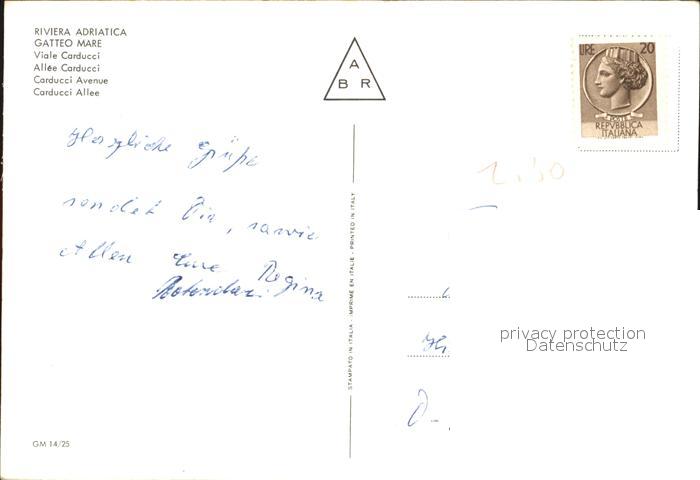 RIVIERA ADRIATICA
GATTEO MARE
Viale Carducci
Allée Carducci
Carducci Avenue
Carducci Allee
A
B R
LIRE 20
POSTE
REPVBBLICA
ITALIANA
Herzliche Grüße
sendet Dir, sowie
Allen Eure Regina
STAMPATO IN ITALIA - IMPRIMÉ EN ITALIE - PRINTED IN ITALY
privacy protection
Datenschutz
GM 14/25